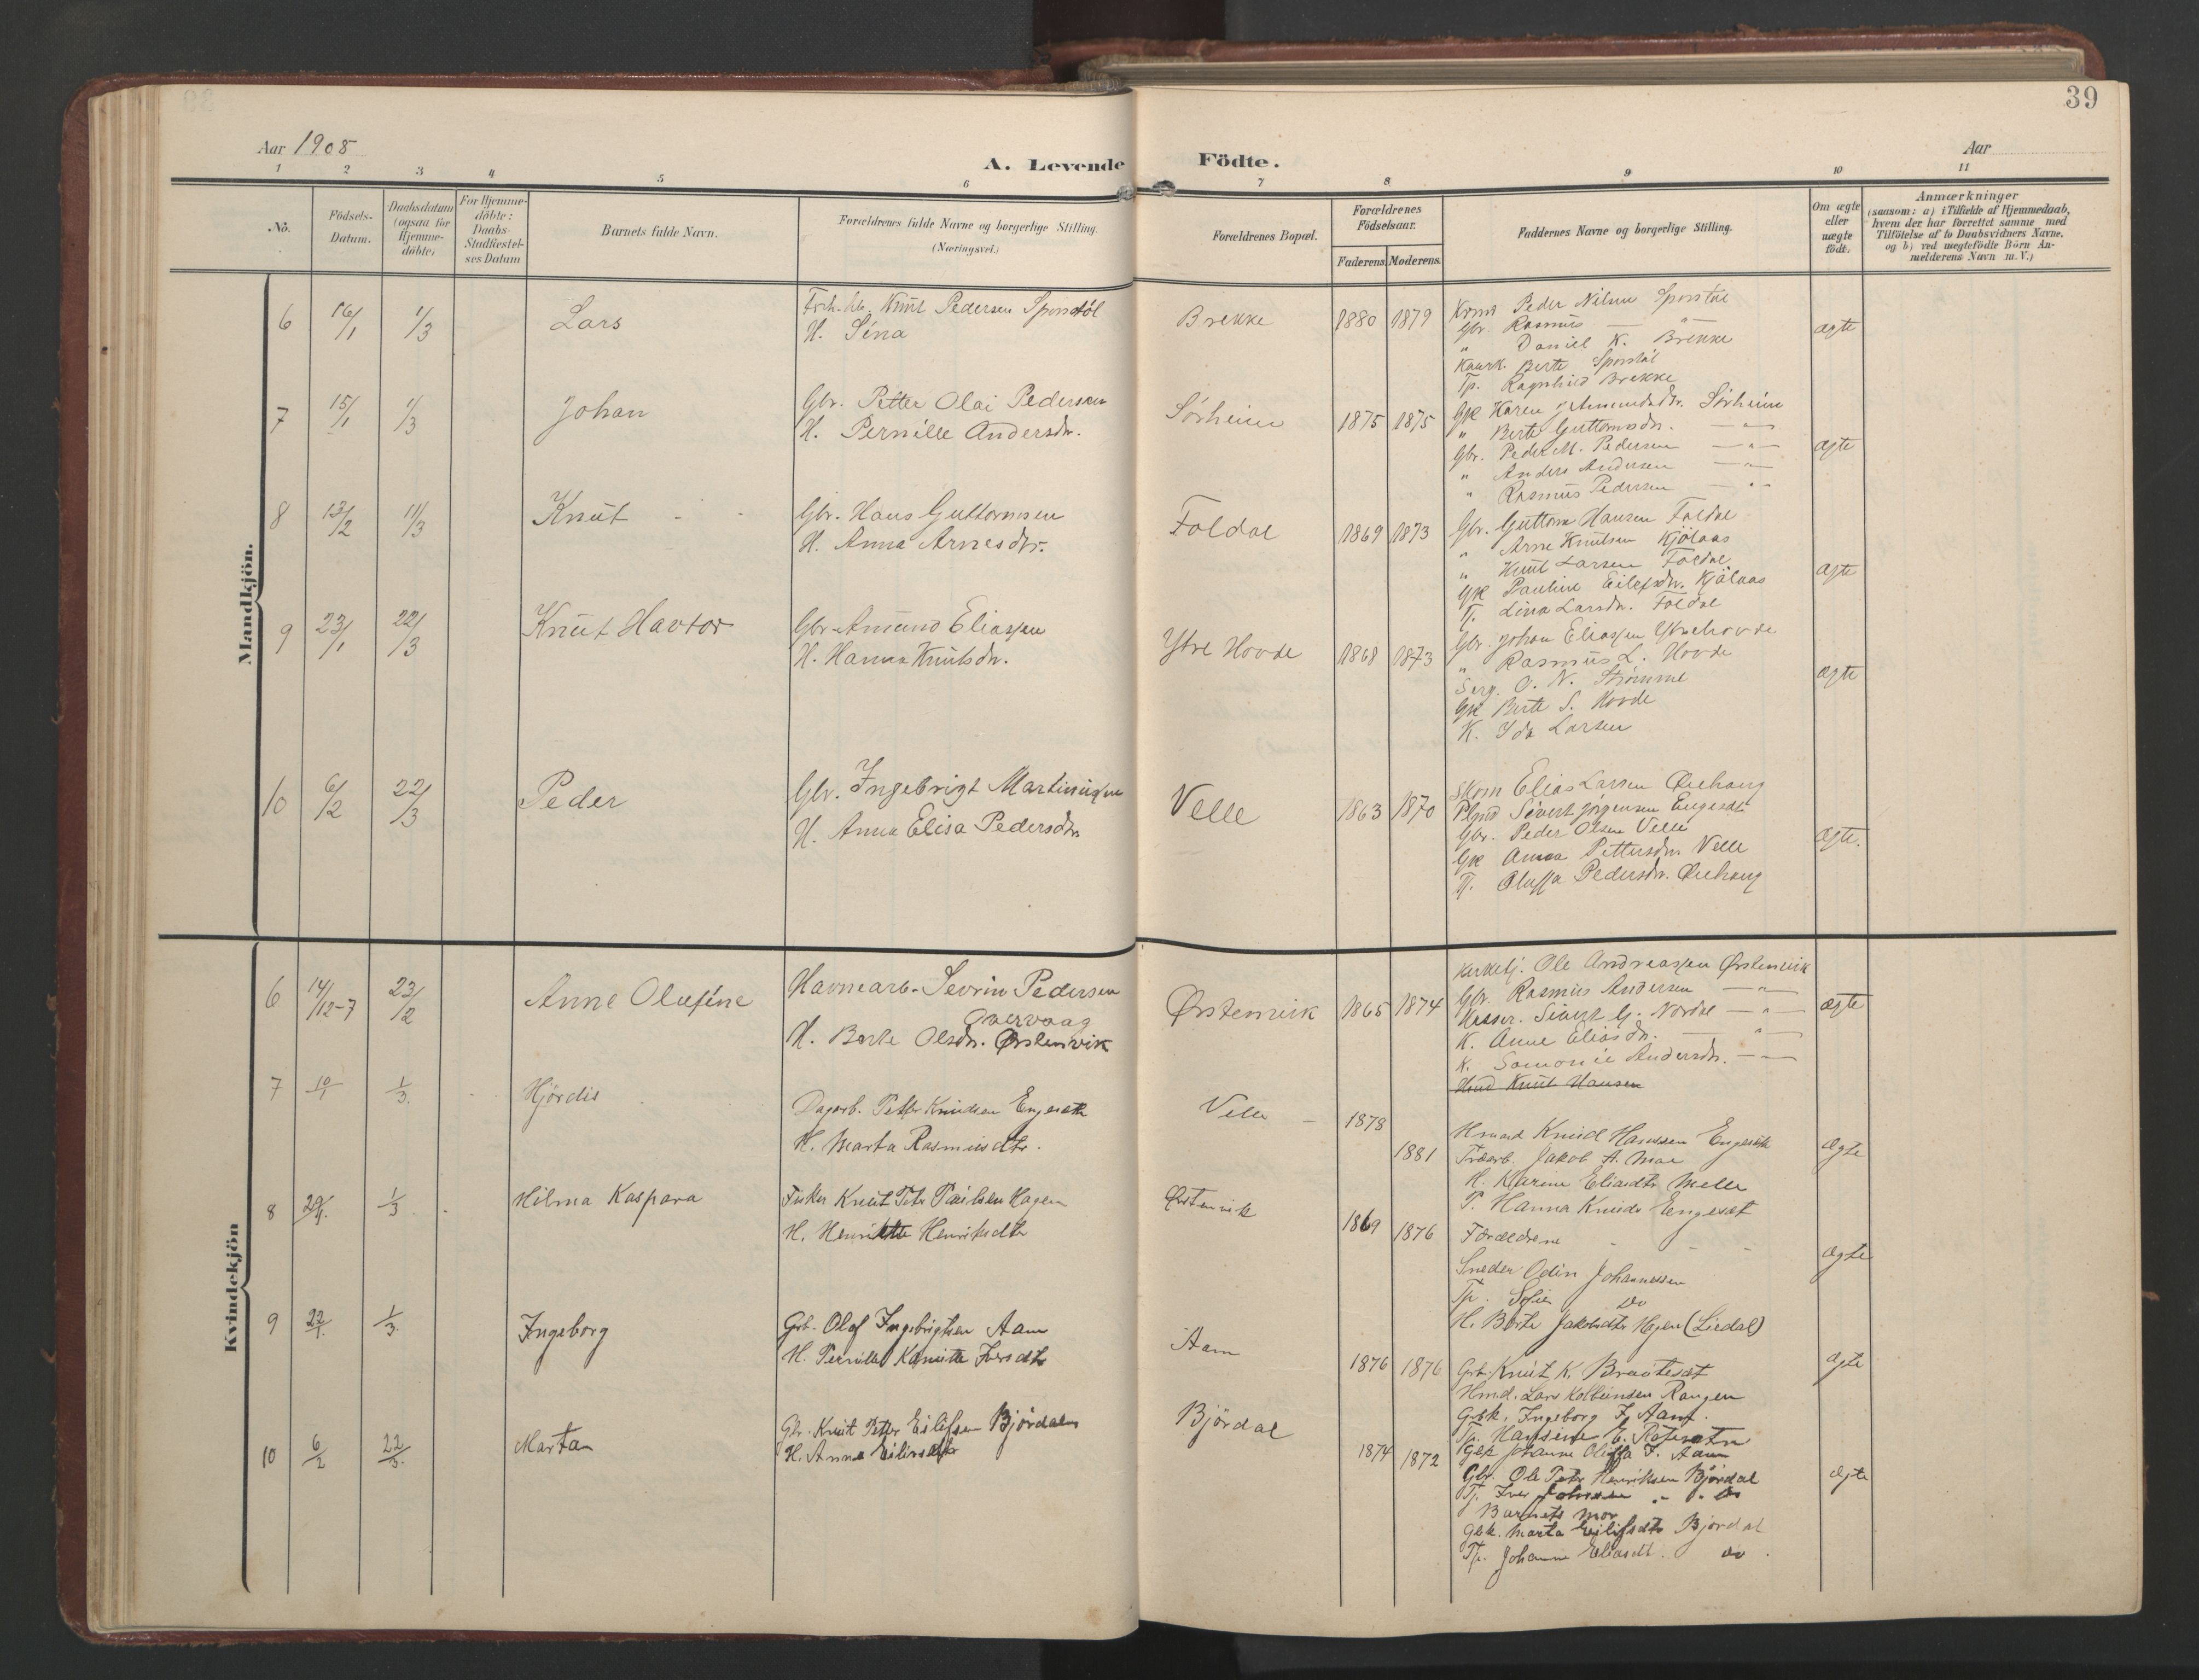 39
Aar 1908
A. Levende Födte.
Aar
1 2 3 4 5 6 7 8 9 10 11
No.
Födsels-Datum.
Daabsdatum (ogsaa for Hjemme-döbte)
For Hjemme-döbte: Daabs-Stadfæstel-ses Datum
Barnets fulde Navn.
Forældrenes fulde Navne og borgerlige Stilling. (Næringsvei.)
Forældrenes Bopæl.
Forældrenes Födselsaar.
Faderens. Moderens.
Faddernes Navne og borgerlige Stilling.
Om ægte eller uægte födt.
Anmærkninger
(saasom: a) i Tilfælde af Hjemmedaab,
hvem der har forrettet samme med
Tilföielse af to Daabsvidners Navne,
og b) ved uægtefödte Börn An-
melderens Navn m. V.)
Mandkjön.
6 16/1 1/3 Lars
Knut Pedersen Sporstöl
H. Sina
Brekke 1880 1879
Peder Nilsen Sporstöl
Gbr. Rasmus — " —
" Daniel K. Brekke
Berte Sporstöl
Tp. Ragnhild Brekke
ægte
7 15/1 1/3 Johan
Gbr. Petter Olai Pedersen
H. Pernille Andersdr.
Sörheim 1875 1875
Gk Karen Amundsdr. Sörheim
" Berte Guttormsdr. — " —
Gbr. Peder M. Pedersen — " —
" Anders Andersen — " —
" Rasmus Pedersen — " —
ægte
8 13/2 11/3 Knut
Gbr. Hans Guttormsen
H. Anna Arnesdtr.
Foldal 1869 1873
Gbr. Guttorm Hansen Foldal
" Arne Knutsen Kjölaas
" Knut Larsen Foldal
Gk Pauline Eilefsdr. Kjölaas
Tj. Lina Larsdr. Foldal
ægte
9 23/1 22/3 Knut Havtor
Gbr. Amund Eliassen
H. Hanna Knutsdr.
Ytre Hovde 1868 1873
Gbr. Johan Eliassen Ytrehovde
" Rasmus L. Hovde
Serg. O. N. Strömme
Gk Berte S. Hovde
K. Ida Larsen
ægte
10 6/2 22/3 Peder
Gbr. Ingebrigt Martinussen
H. Anna Elisa Pedersdr.
Velle 1863 1870
Skom Elias Larsen Ørehaug
Sivert Jörgensen Engeset
Gbr. Peder Olsen Velle
Gk Anna Pettersdr. Velle
Tj. Oluffa Pedersdr. Ørehaug
ægte.
Kvindekjön
6 14/12-7 23/2 Anne Olufine
Havnearb. Sevrin Pedersen
Overvaag
H. Berte Olsdr. Ørstenvik
Ørstenvik 1865 1874
Kirketj. Ole Andreassen Ørstenvik
Gbr. Rasmus Andersen — " —
Kasser. Sivert G. Nordal — " —
K. Anne Eliasdr. — " —
K. Samonie Andersdr. — —
Hmd Knut Hansen
ægte
7 10/1 1/3. Hjördis
Dagarb. Petter Knudsen Engeset
H. Marta Rasmusdtr.
Velle 1878
1881
Hmand Knud Hanssen Engeset
Træarb. Jakob A. Moe
H. Karine Eliasdtr Melle
P. Hanna Knuds Engeset
ægte
8 29/1. 1/3. Hilma Kaspara
Fisker Knut Petr Paulsen Hagen
H. Henriette Henriksdtr
Ørstenvik
1869 1876
Forældrene
Sneder Odin Johannessen
Tp. Sofie do
H. Berte Jakobsdtr Hagen (Liedal)
ægte
9 22/1. 1/3. Ingeborg
Grb. Olaf Ingebrigtsen Aam
H. Pernille Kanutte Iversdtr
Aam
1876 1876
Grb. Knut K. Brauteset
Hmd. Lars Kolbeinsen Rangen
Grbk. Ingeborg I. Aam.
Tp.
Gbk Johanne Oliffa I. Aam
ægte
10 6/2 22/3. Marta
Gbr. Knut Petter Eilifsen Björdal
H. Anne
Björdal
1874 1872
Gbr. Ole Peter Henriksen Björdal
Tj. Iver Johnsen " do
Barnets mor
Gbk. Marta Eilifsdtr Björdal
Tp. Johanne Eliasdt. do.
ægte